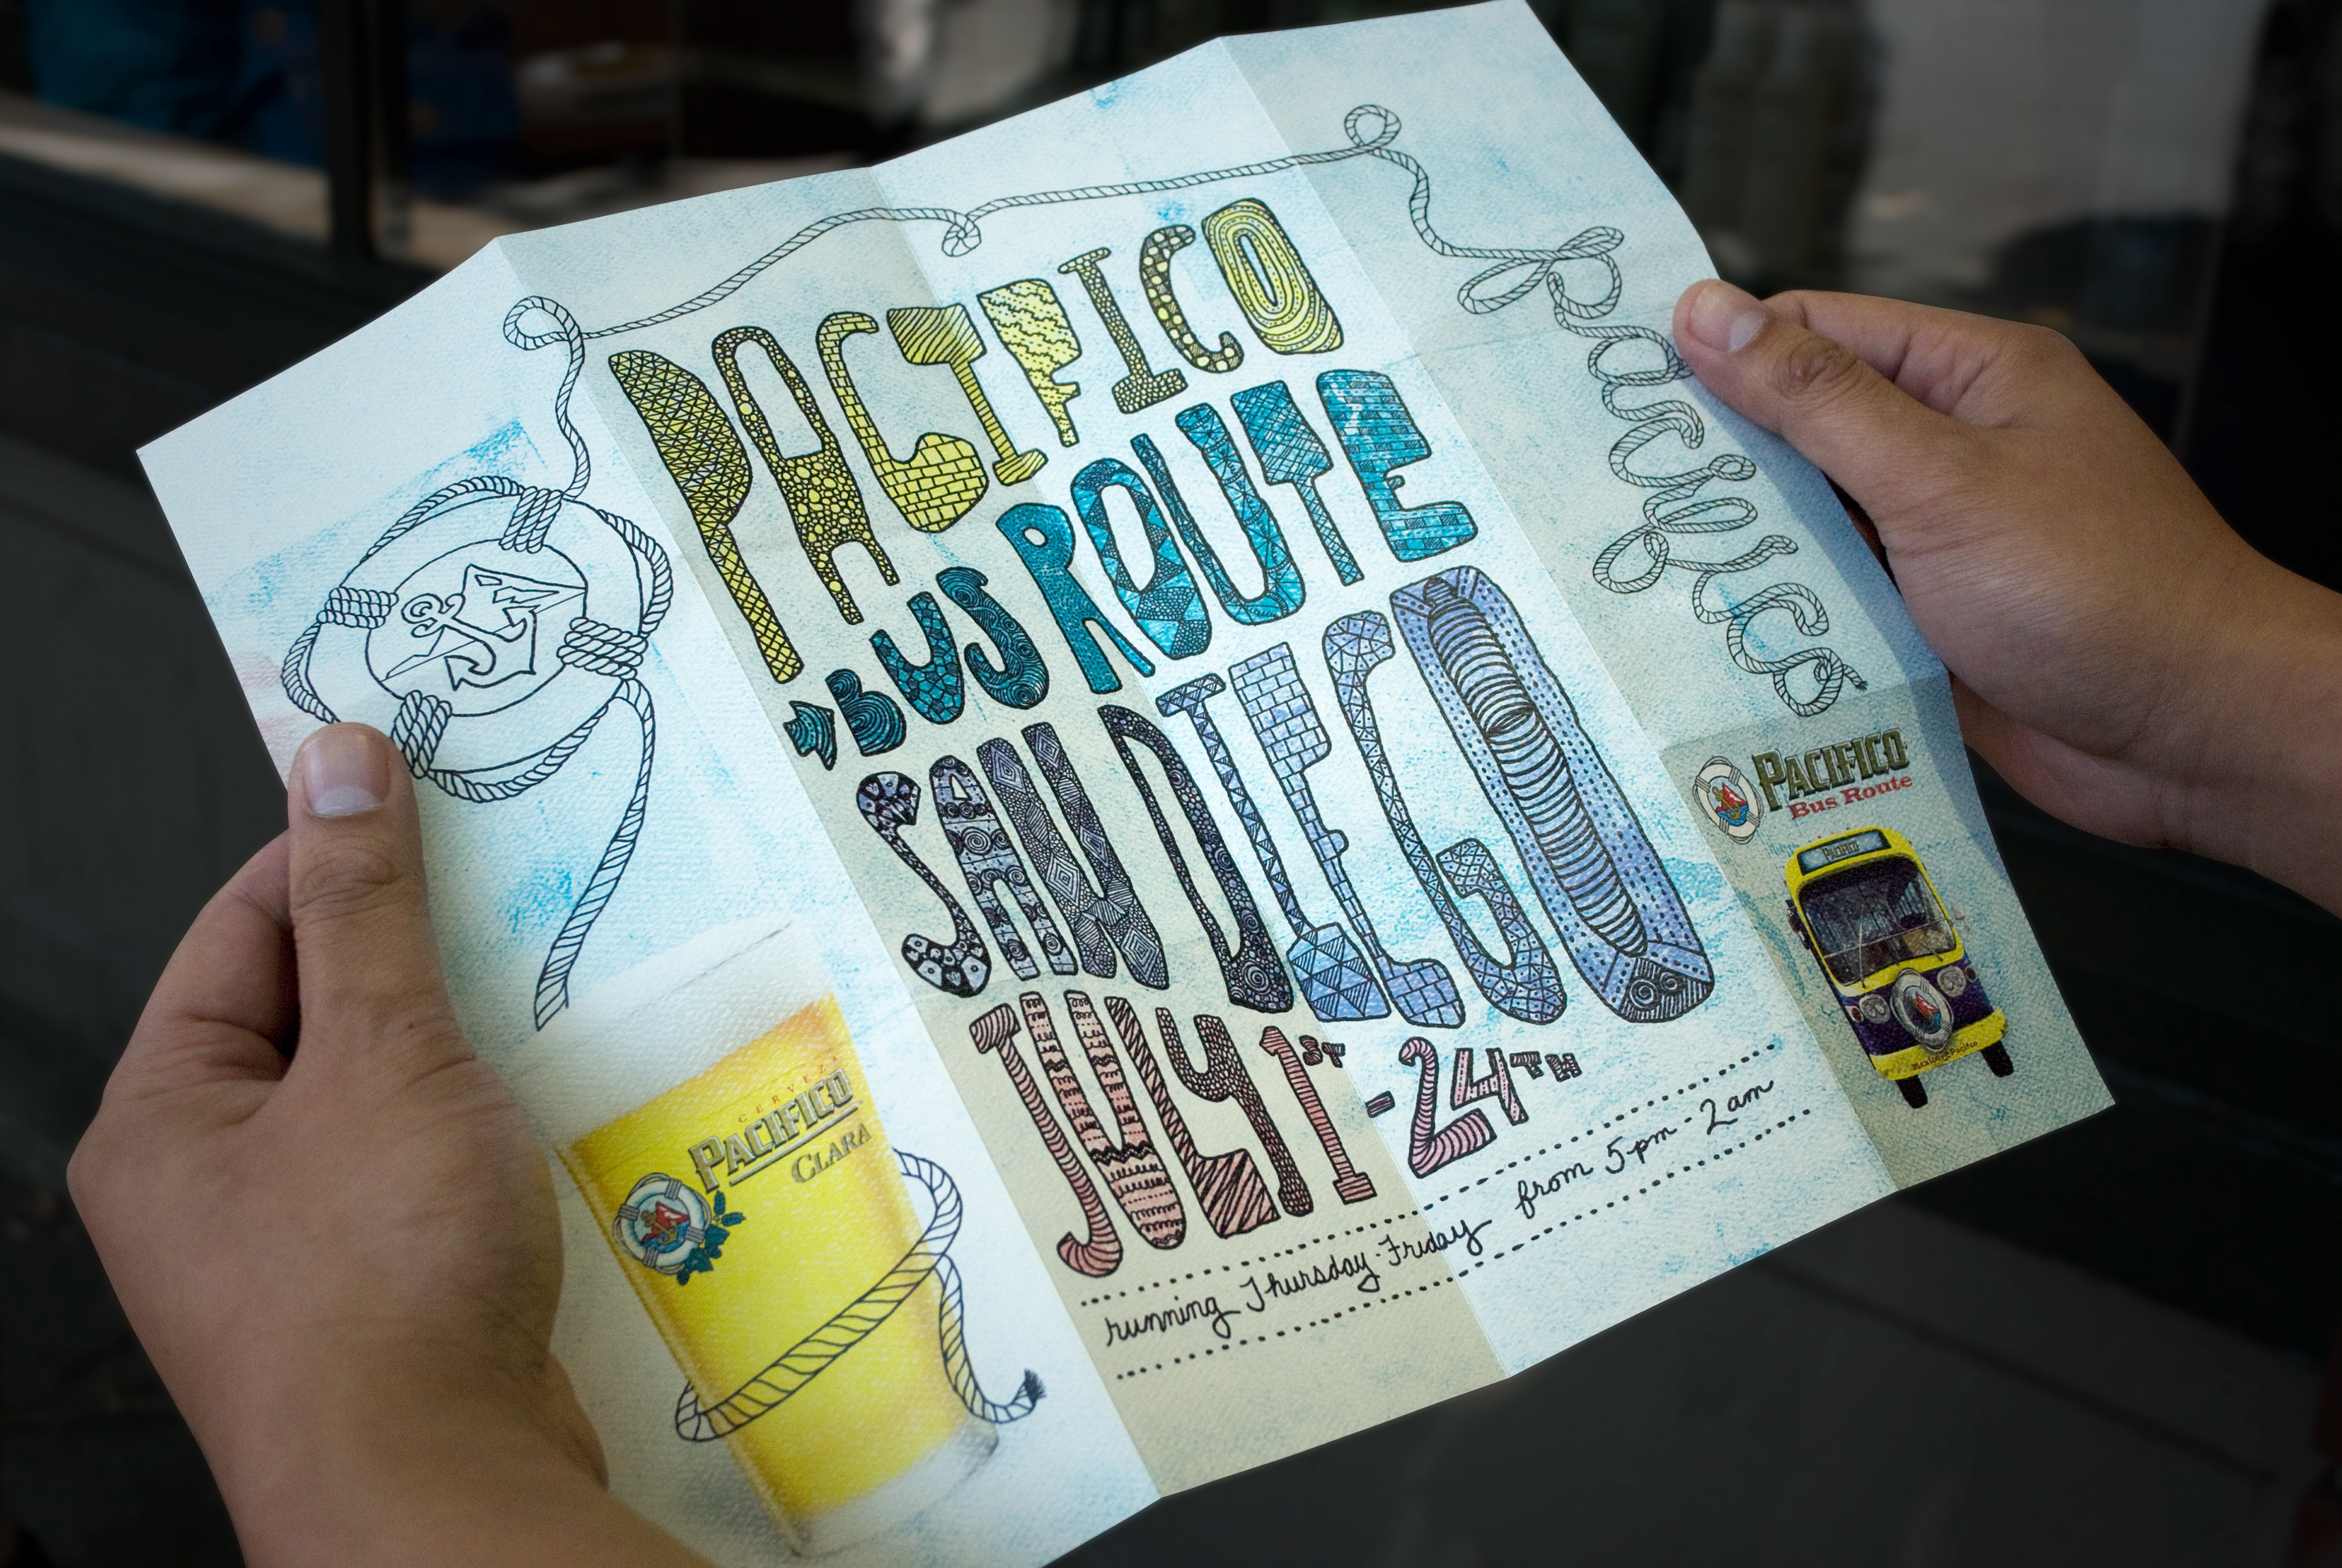 PACIFICO
BUS ROUTE
SAN DIEGO
JULY 1ST - 24TH
running Thursday-Friday from 5pm-2am
Pacifico
PACIFICO
Bus Route
PACIFICO
CERVEZA
PACIFICO
CLARA